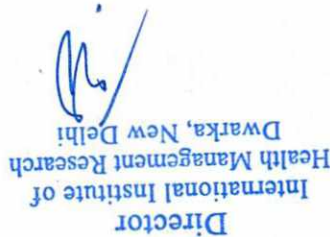 Director
International Institute of
Health Management Research
Dwarka, New Delhi